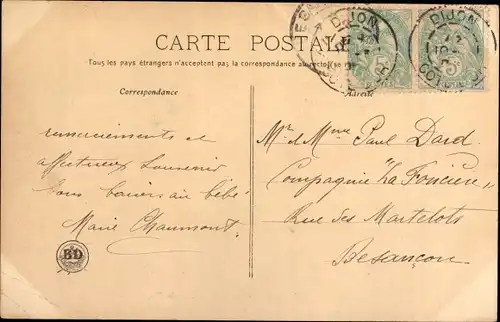 CARTE POSTALE
Tous les pays étrangers n'acceptent pas la correspondance au recto
Correspondance
Adresse
DIJON
DIJON
remerciements et
affectueux souvenir
bons baisers au bébé
Marie Chaumont.
Mr. et Mme Paul Dard
Compagnie "La Foncière"
Rue des Martelots
Besançon
BD